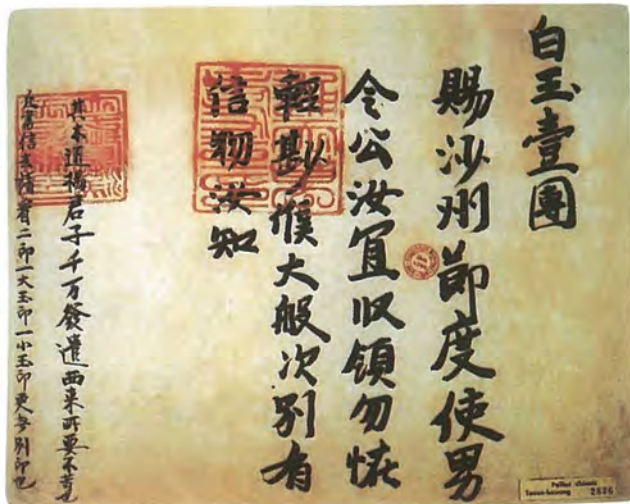 白玉壹團
賜沙州節度使男
令公汝宜收領勿恠
輕尠候大般次別有
信物汝知
其木匠楊君子千万發遣西來所要不昔也
凡書信去請看二印一大玉印一小玉印更無別印也
Pelliot chinois
Touen-houang 2826